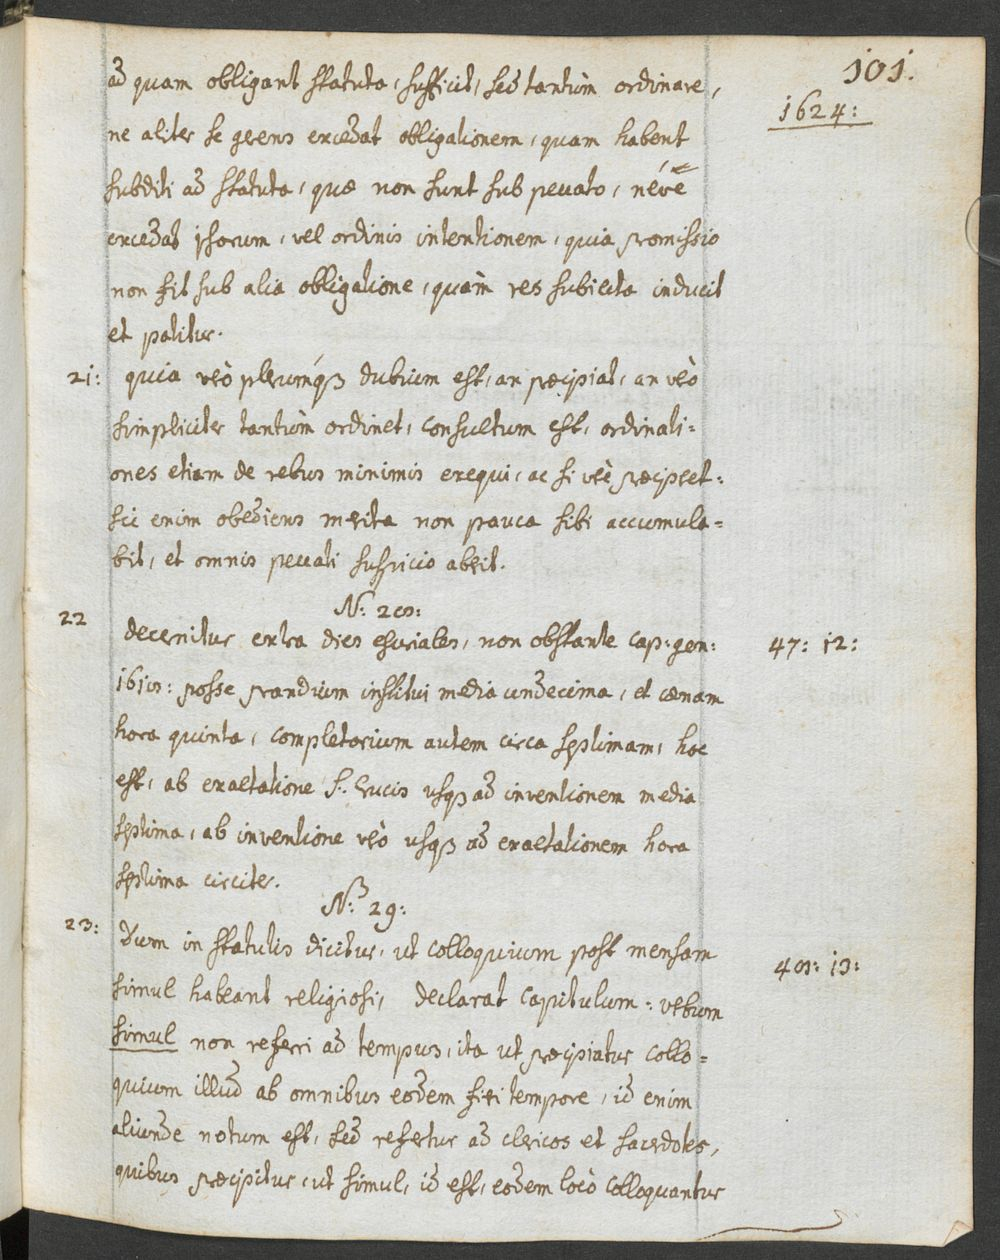 101.
1624:
ad quam obligant statuta, sufficit, sed tantùm ordinare,
ne aliter se gerens excedat obligationem, quam habent
subditi ad statuta, quæ non sunt sub peccato, néve
excedat ipsorum, vel ordinis intentionem, quia promissio
non fit sub alia obligatione, quàm res subiecta inducit
et patitur.
21: quia vèò plerumq́ꝫ dubium est, an præcipiat, an vèò
simpliciter tantùm ordinet, consultum est, ordinati=
ones etiam de rebus minimis exequi, ac si vèè præcipèet:
sic enim obediens merita non pauca sibi accumula=
bit, et omnis peccati suspicio abèit.
N: 28:
22 Decernitur extra dies esuriales, non obstante cap: gen: 47: 12:
1618: posse prandium institui media undecima, et cænam
hora quinta, completorium autem circa septimam, hoc
est, ab exaltatione S. Crucis usqꝫ ad inventionem media
septima, ab inventione vèò usqꝫ ad exaltationem hora
septima circiter.
N: 29:
23: Dum in statutis dicitur, ut colloquium post mensam 48: 13:
simul habeant religiosi, declarat Capitulum: vèbum
simul non referri ad tempus, ita ut præcipiatur collo=
quium illud ab omnibus eodem fieri tempore, id enim
aliunde notum est, sed refertur ad clericos et sacerdotes,
quibus præcipitur, ut simul, id est, eodem locò colloquantur